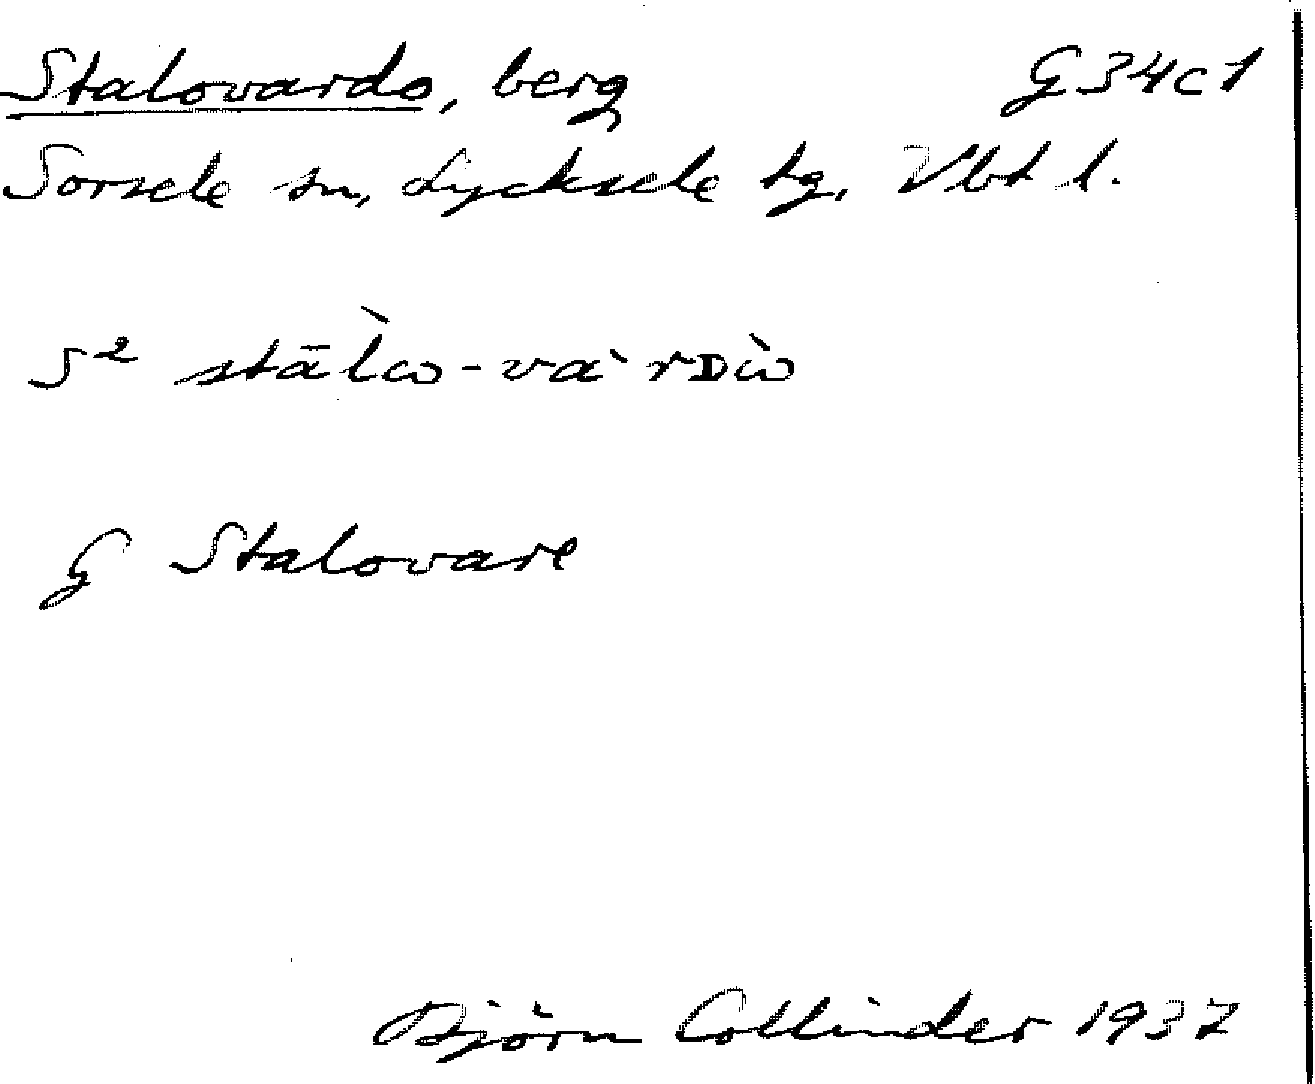 Stalovardo, berg G34c1
Sorsele sn, Lycksele tg. Vbt l.
S² stāl̀ω-vàrᴅὼ
G Stalovare
Björn Collinder 1937